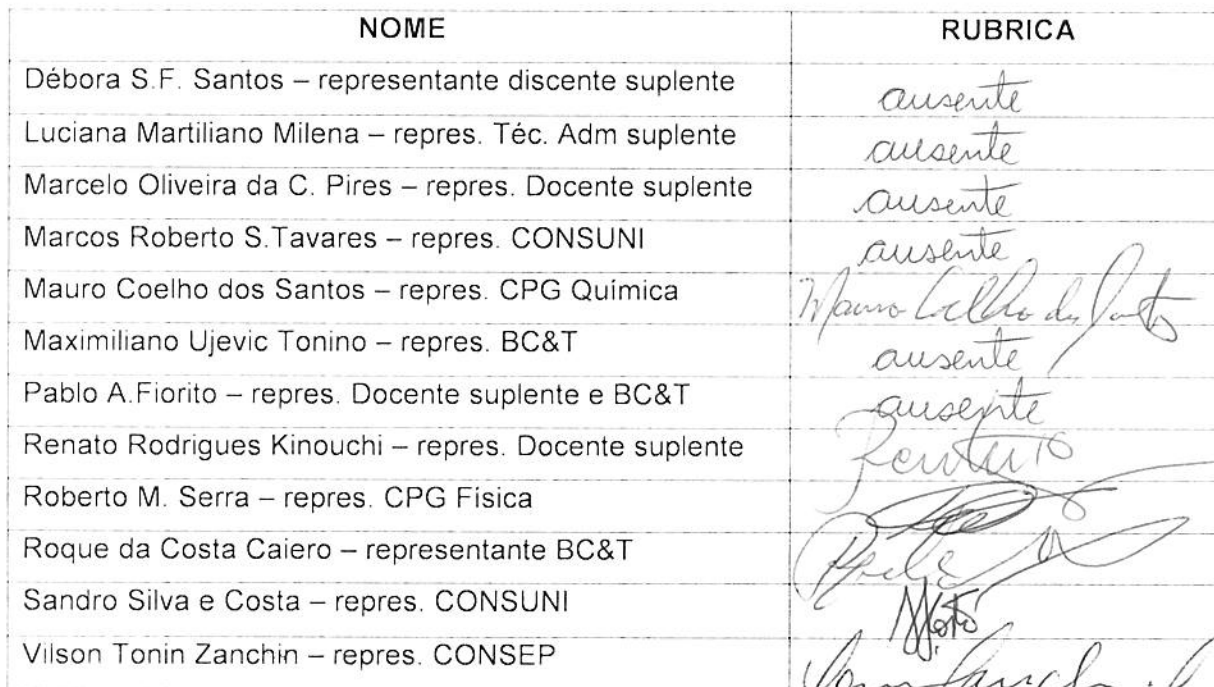 NOME RUBRICA
Débora S.F. Santos – representante discente suplente ausente
Luciana Martiliano Milena – repres. Téc. Adm suplente ausente
Marcelo Oliveira da C. Pires – repres. Docente suplente ausente
Marcos Roberto S.Tavares – repres. CONSUNI ausente
Mauro Coelho dos Santos – repres. CPG Química Mauro Coelho dos Santos
Maximiliano Ujevic Tonino – repres. BC&T ausente
Pablo A.Fiorito – repres. Docente suplente e BC&T ausente
Renato Rodrigues Kinouchi – repres. Docente suplente Renato
Roberto M. Serra – repres. CPG Física
Roque da Costa Caiero – representante BC&T
Sandro Silva e Costa – repres. CONSUNI
Vilson Tonin Zanchin – repres. CONSEP